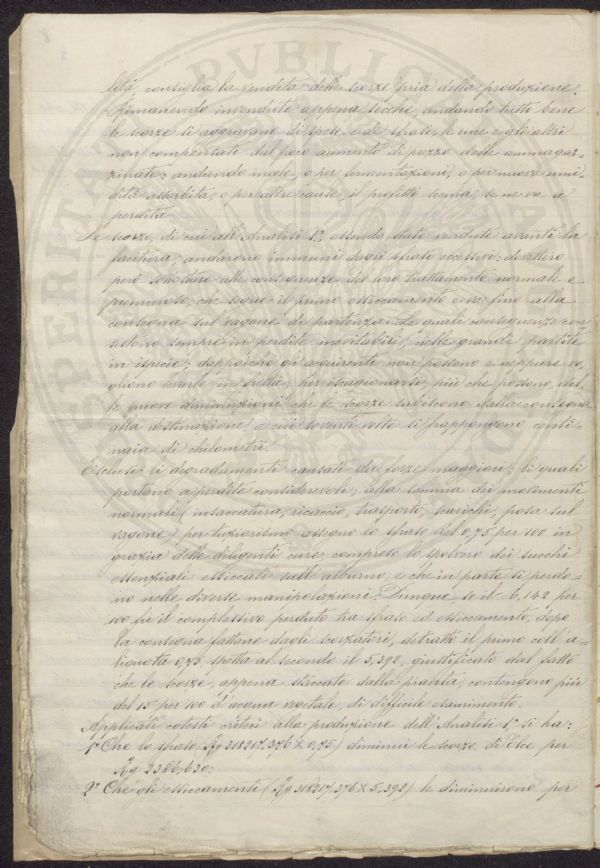 8
lità, consiglia la vendita delle scorze pria della produzione.
Rimanendo invendute appena secche, andando tutto bene
le scorze si aggravano di spese e di sfrato, le une e gli altri
non compensati dal poco aumento di prezzo delle ammagaz-
zinate: andando male, o per fermentazioni, o per nuova umi-
dità assorbita, o per altre cause, il profitto scema, se ne va a
perdita
Le scorze, di cui all'Analisi 1ª, essendo state vendute avanti la
facitura, andarono immuni dagli sfrati eccessivi: dovettero
però sottostare alle conseguenze del loro trattamento normale e
premuroso, che segue il primo essiccamento e va fino alla
consegna sul vagone di partenza. Le quali conseguenze con
sistono sempre in perdite inevitabili, nelle grandi partite
in ispecie; doppoichè gli acquirenti non possono e neppure vo
gliono usarle in fretta, per iscagionarsi, più che possono, del-
le nuove diminuzioni che le scorze subiscono dalla consegna
alla destinazione, a cui sovente volte si frappongono centi-
naia di chilometri.
Esclusi i degradamenti causati da forze maggiori, li quali
portano a perdite considerevoli; alla somma dei movimenti
normali (insaccatura, ricaccio, trasporti, scarichi, posa sul
vagone) per tuziorismo assegno lo sfraso del 0,75 per 100 in
grazia delle diligenti cure, compreso lo spolvero dei succhi
essenziali essiccati sull'alburno, e che in parte si perdo-
no nelle diverse manipolazioni. Dunque, se il 6,142 per
100 fu il complessivo perduto tra sfraso ed essiccamento, dopo
la consegna fattane dagli scorzatori, detratti il primo coll'a-
liquota 0,75 spetta al secondo il 5,392, giustificato dal fatto
che le scorze, appena staccate dalla pianta, contengono più
del 15 per 100 d'acqua vegetale, di difficile esaurimento.
Applicati cotesti criteri alla produzione dell'Analisi 1ª si ha:
1º Che lo sfraso (Kg 318217,376 X 0,75) diminuì le scorze di Elce per
Kg 2386,630:
2º Che gli essiccamenti (Kg 318217,376 X 5,392) le diminuirono per